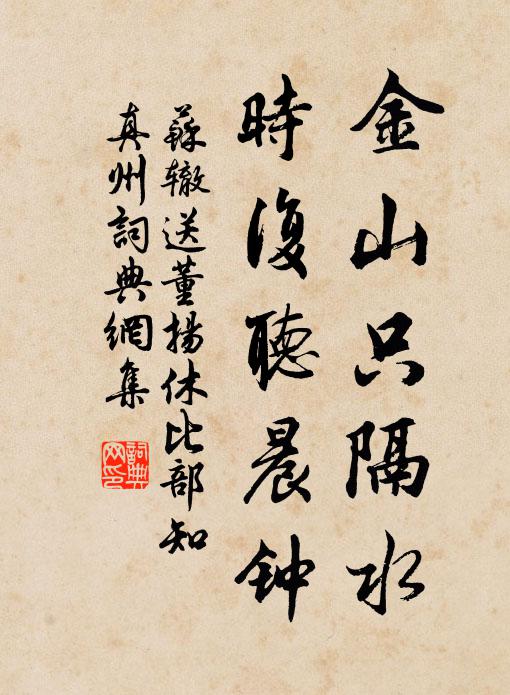 金山只隔水
時復聽晨钟
蘇辙送董揚休比部知
真州詞典網集
詞典
网印